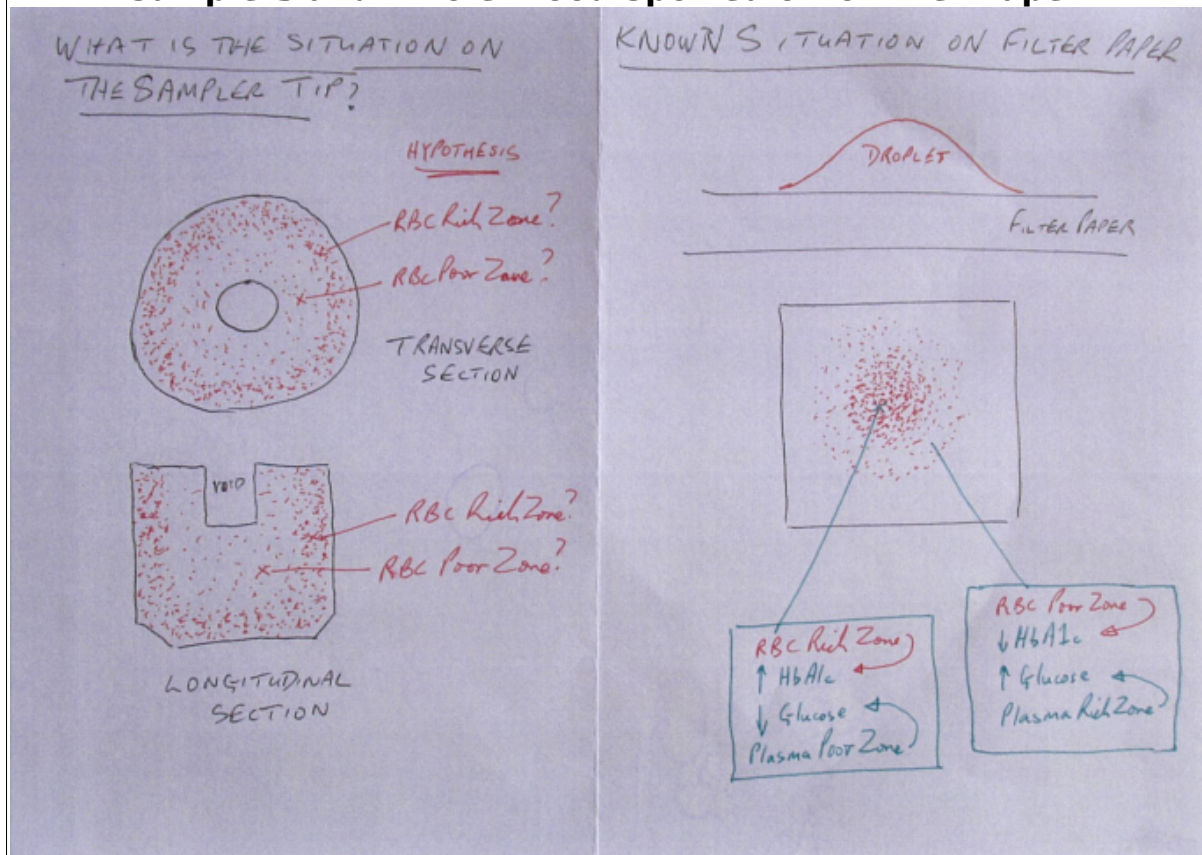 WHAT IS THE SITUATION ON
THE SAMPLER TIP?
HYPOTHESIS
RBC Rich Zone?
RBC Poor Zone?
TRANSVERSE
SECTION
VOID
RBC Rich Zone?
RBC Poor Zone?
LONGITUDINAL
SECTION
KNOWN SITUATION ON FILTER PAPER
DROPLET
FILTER PAPER
RBC Rich Zone
↑ HbA1c
↓ Glucose
Plasma Poor Zone
RBC Poor Zone
↓ HbA1c
↑ Glucose
Plasma Rich Zone